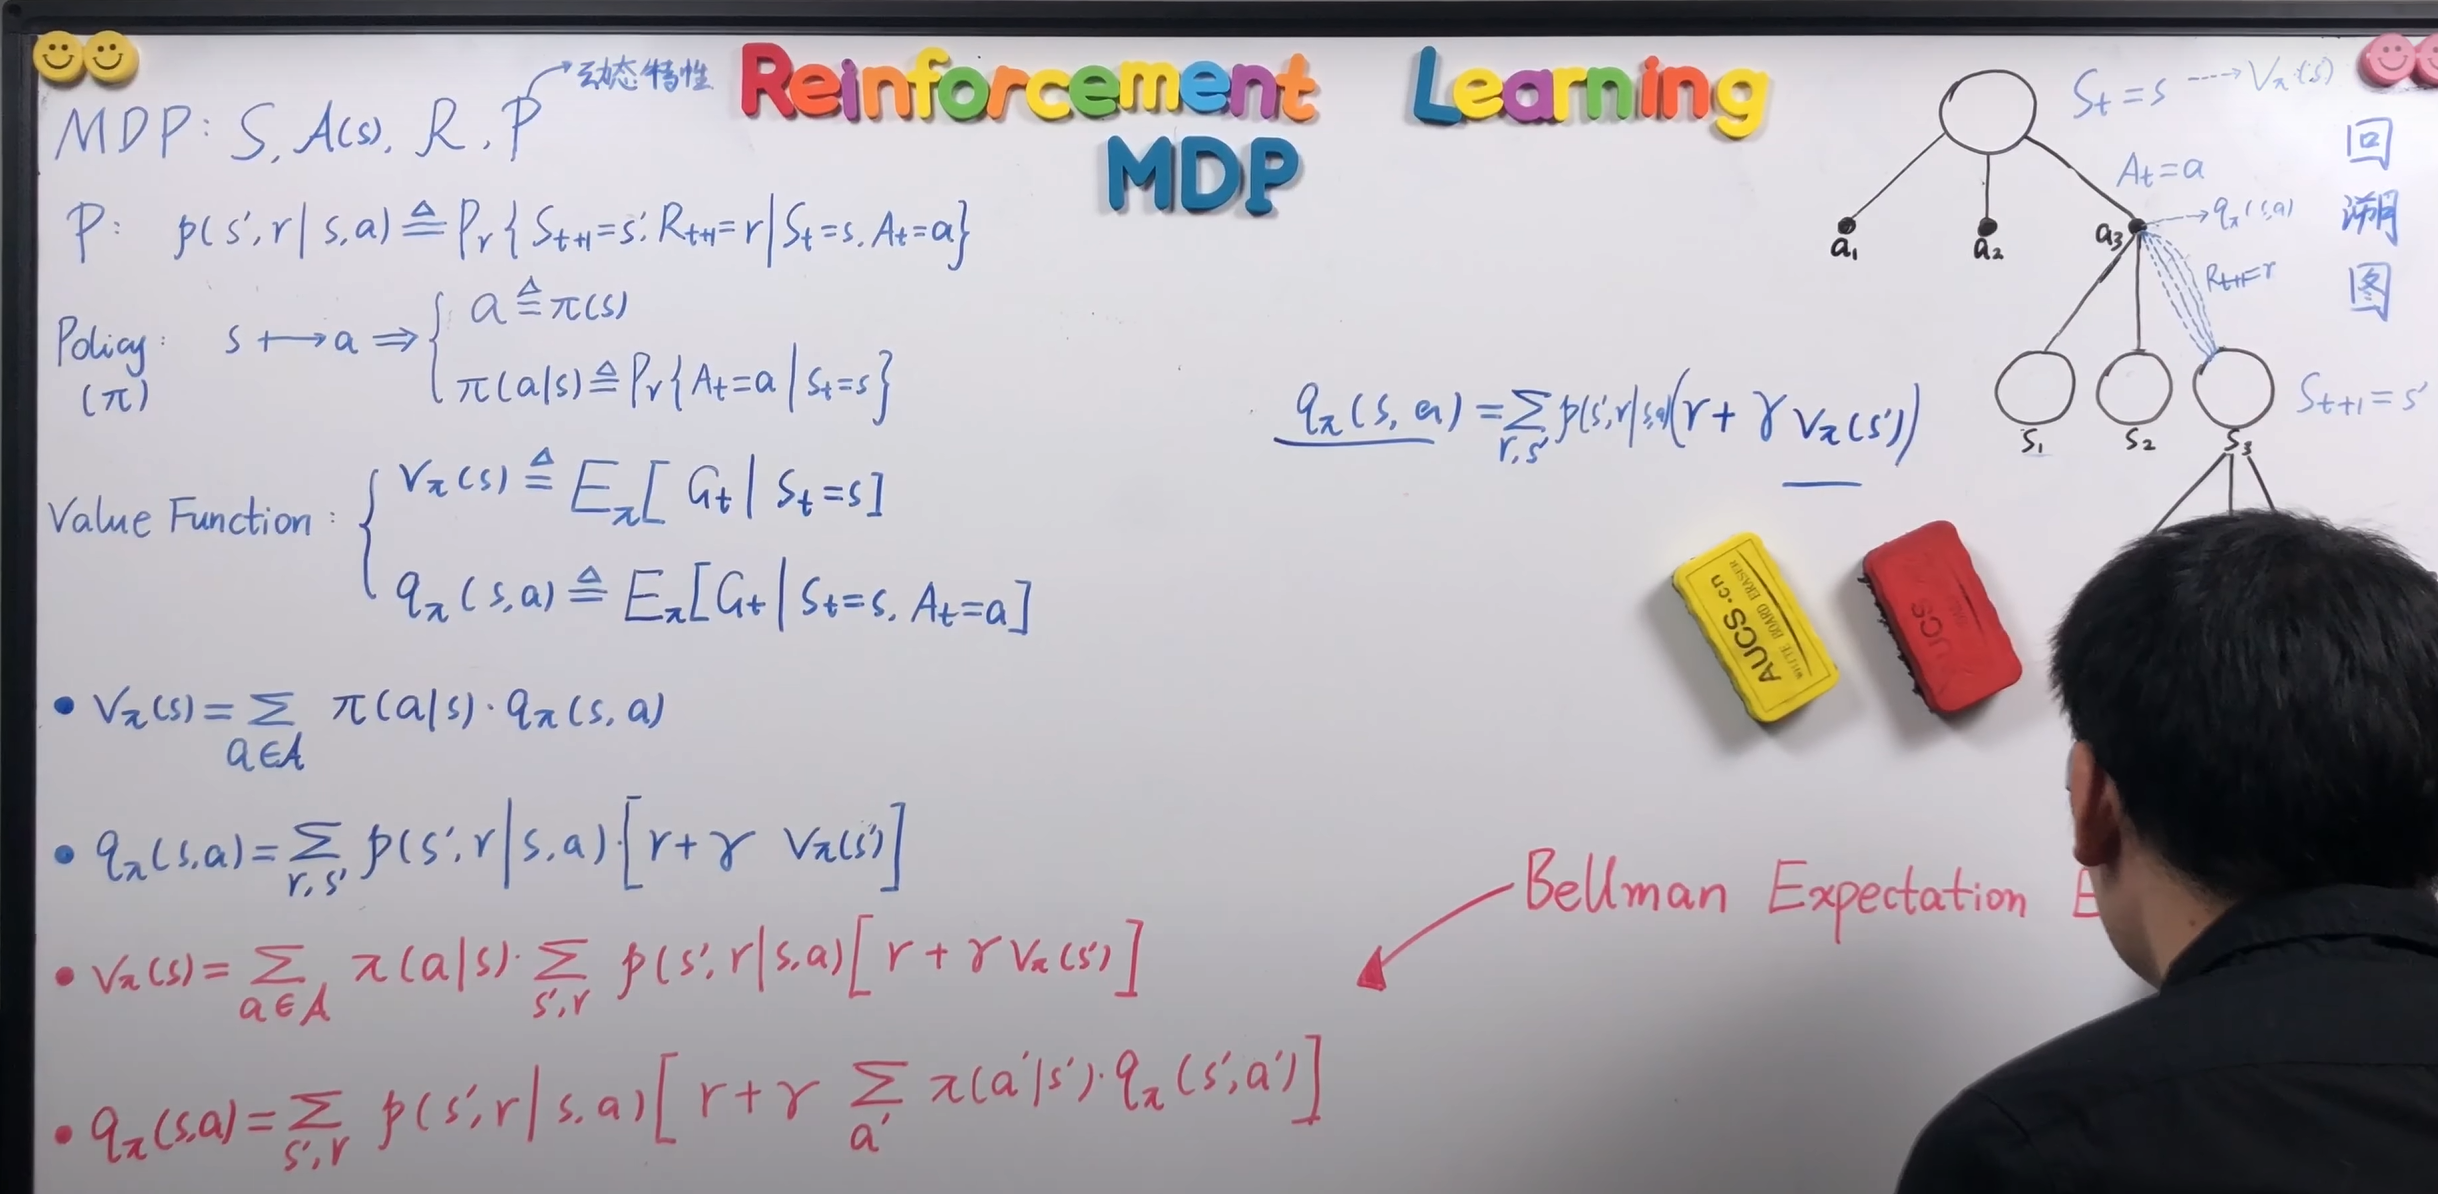 Reinforcement Learning
MDP
MDP: S, A(s), R, P → 动态特性
P: p(s',r|s,a) ≜ Pr{St+1=s', Rt+1=r|St=s, At=a}
Policy: (π) s ⟼ a ⇒ { a ≜ π(s)
π(a|s) ≜ Pr{At=a|St=s}
Value Function: { Vπ(s) ≜ Eπ[Gt|St=s]
qπ(s,a) ≜ Eπ[Gt|St=s, At=a]
• Vπ(s) = Σ a∈A π(a|s)·qπ(s,a)
• qπ(s,a) = Σ r,s' p(s',r|s,a)·[r+γ Vπ(s')]
• Vπ(s) = Σ a∈A π(a|s)·Σ s',r p(s',r|s,a)[r+γVπ(s')]
• qπ(s,a) = Σ s',r p(s',r|s,a)[r+γ Σ a' π(a'|s')·qπ(s',a')]
qπ(s,a) = Σ r,s' p(s',r|s,a)(r+γVπ(s'))
St=s ⇢ Vπ(s)
At=a
a1 a2 a3 → qπ(s,a)
Rt+1=r
s1 s2 s3
St+1=s'
回溯图
AUCS.cn
WHITE BOARD ERASER
UCS
Bellman Expectation E